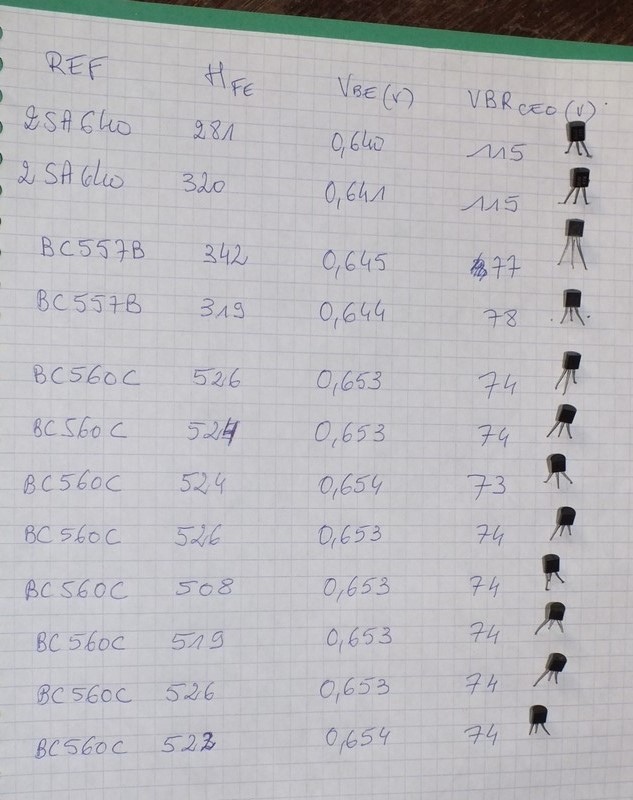 REF HFE VBE(V) VBRCEO(V)
2SA640 281 0,640 115
2SA640 320 0,641 115
BC557B 342 0,645 77
BC557B 319 0,644 78
BC560C 526 0,653 74
BC560C 524 0,653 74
BC560C 524 0,654 73
BC560C 526 0,653 74
BC560C 508 0,653 74
BC560C 519 0,653 74
BC560C 526 0,653 74
BC560C 522 0,654 74